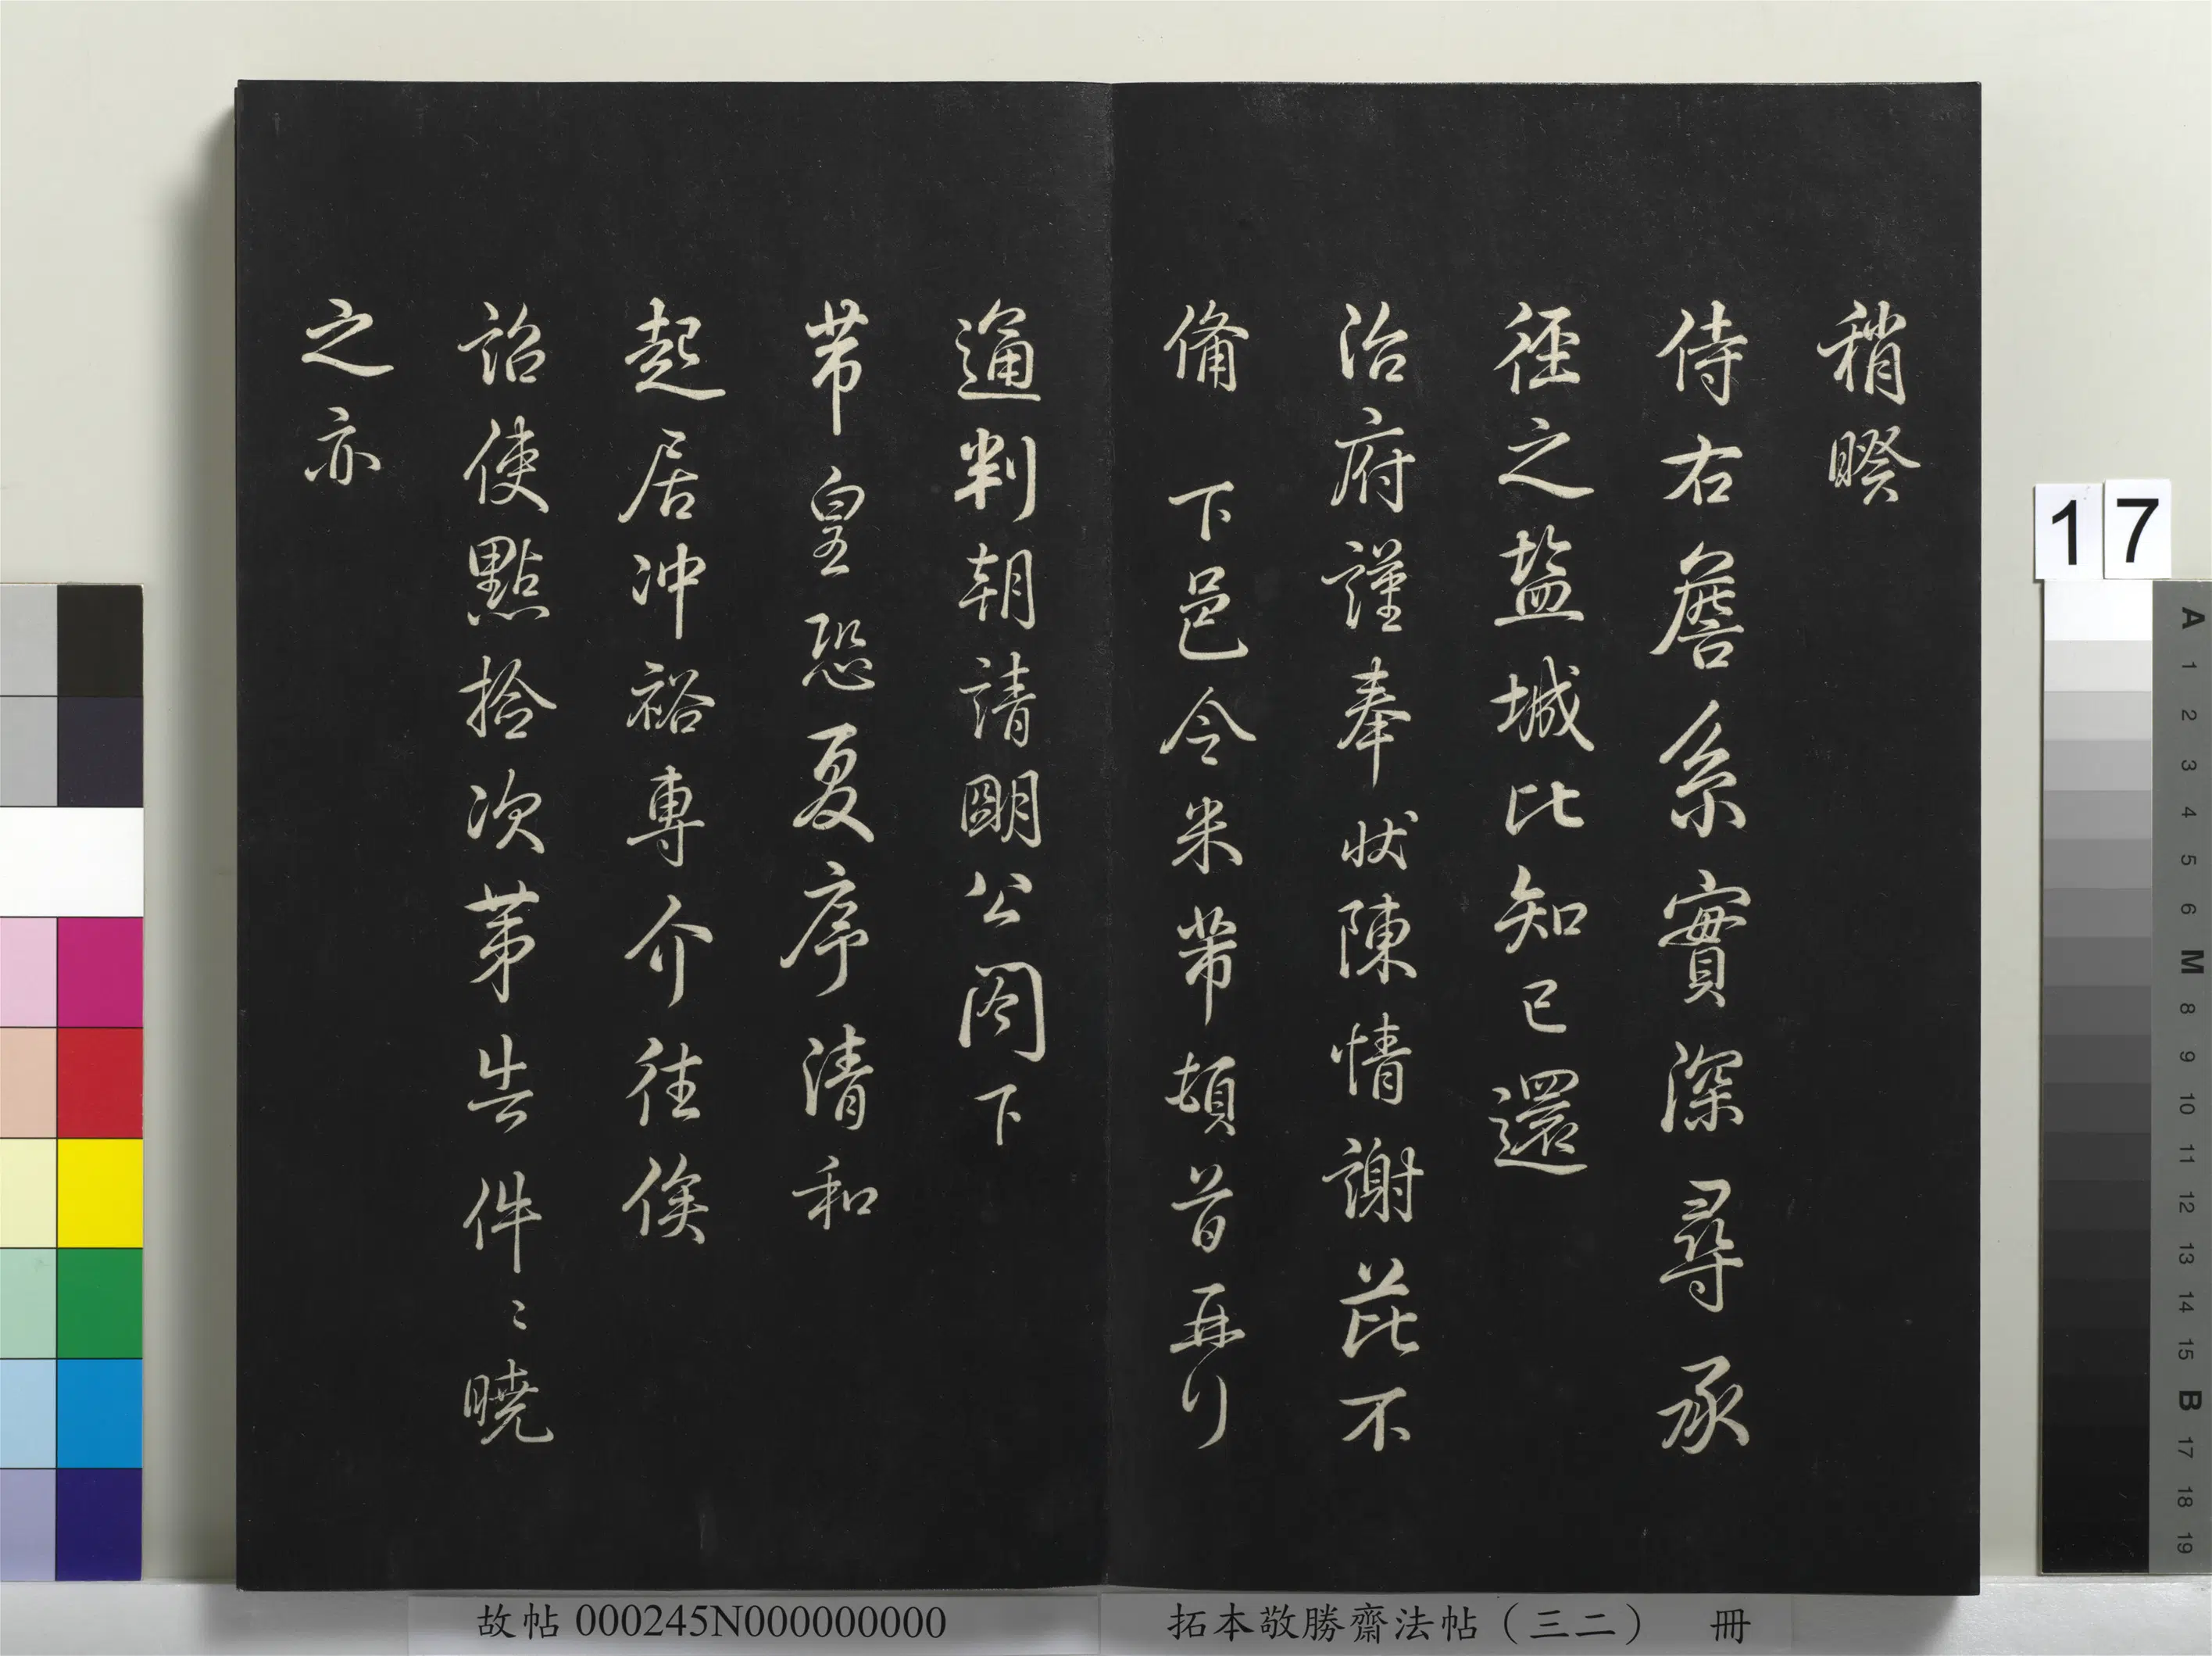 稍暌
侍右詹系實深尋承
徑之盐城比知已還
治府謹奉狀陳情謝茈不
俻下邑令米芾頓首再行
通判朝請朙公阁下
芾皇恐夏序清和
起居冲裕專介往俟
詔使點撿次苐告件〻曉
之亦
17
A 1 2 3 4 5 6 M 8 9 10 11 12 13 14 15 B 17 18 19
故帖 000245N000000000 拓本敬勝齋法帖（三二） 冊